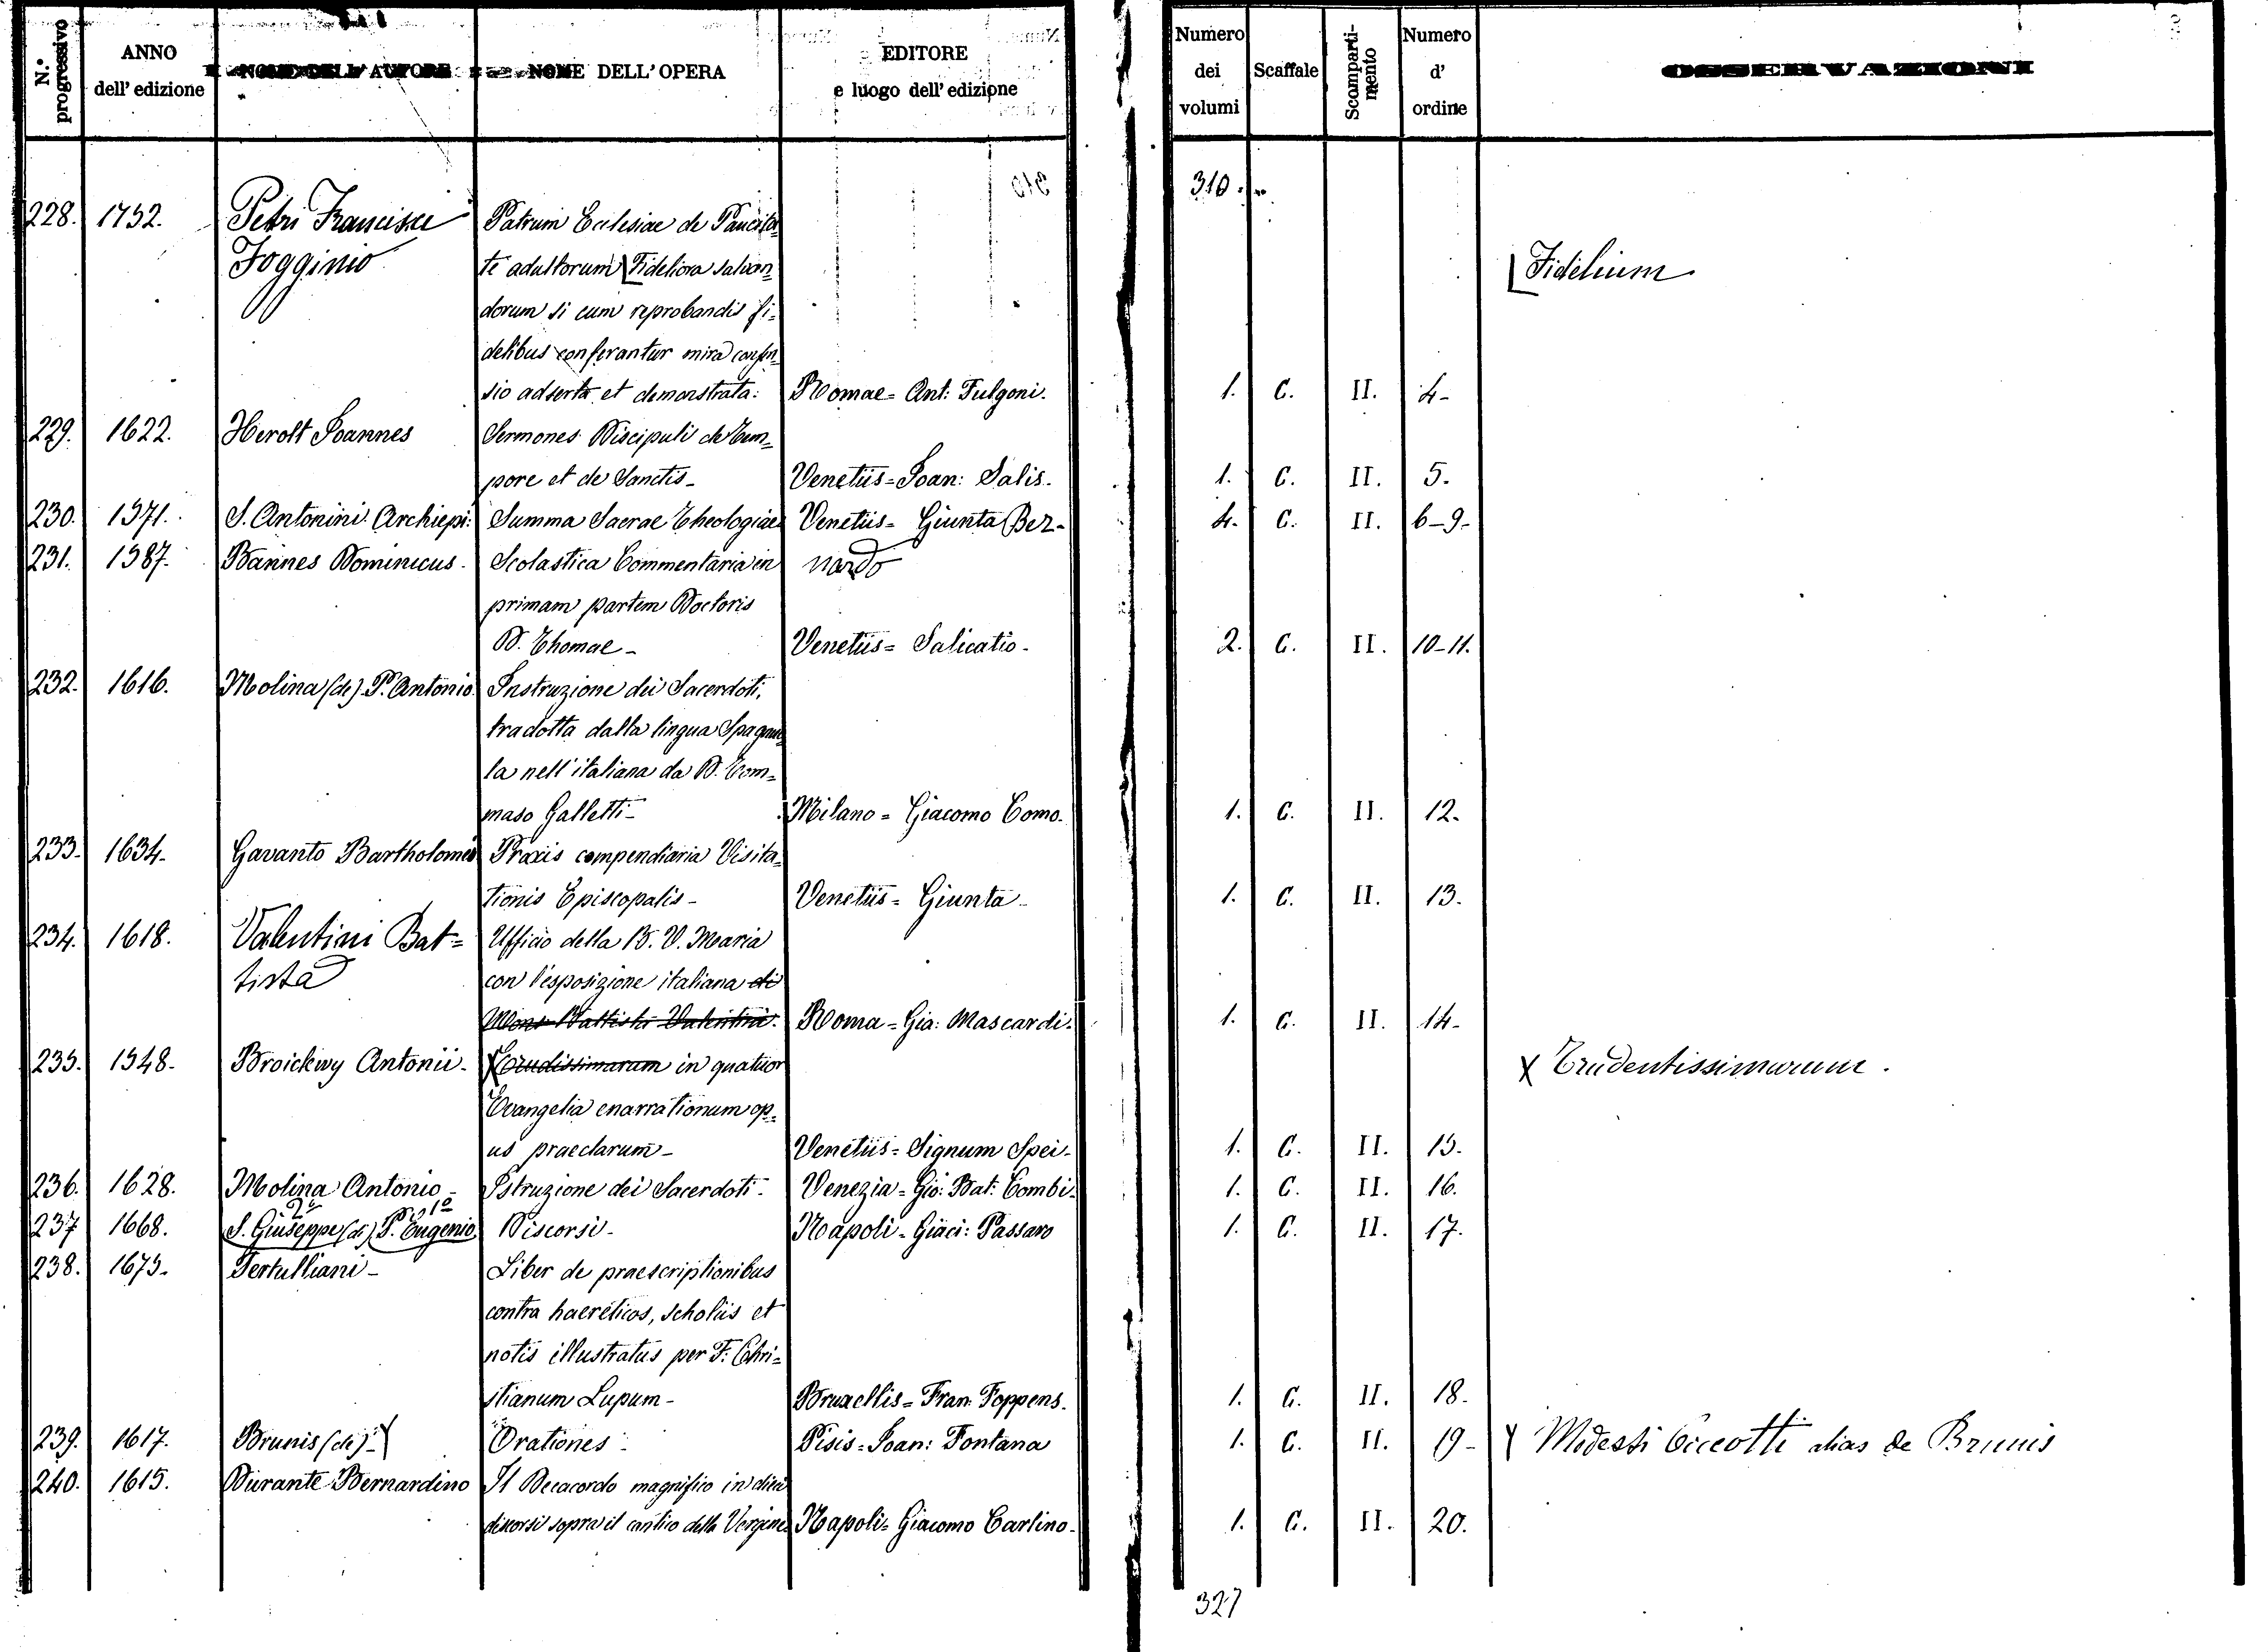 N.° progressivo
ANNO dell' edizione
NOME DELL' AUTORE
NOME DELL' OPERA
EDITORE e luogo dell' edizione
Numero dei volumi
Scaffale
Scomparti-mento
Numero d' ordine
OSSERVAZIONI
310.
228. 1752. Petri Francisci Patrum Ecclesiae de Paucita=
Fogginio te adultorum Fideliora salvan= Fidelium
dorum si cum reprobandis fi=
delibus conferantur mira consen=
sio adserta et demonstrata: Romae = Ant: Fulgoni. 1. C. II. 4-
229. 1622. Herolt Joannes Sermones Discipuli de Tem=
pore et de Sanctis- Venetiis = Joan: Salis. 1. C. II. 5.
230. 1571. S. Antonini Archiepi: Summa Sacrae Theologiae Venetiis = Giunta Ber- 4. C. II. 6-9-
231. 1587. Bannes Dominicus. Scolastica Commentaria in nardo
primam partem Doctoris
D. Thomae - Venetiis = Salicatio - 2. C. II. 10-11.
232. 1616. Molina (de) P. Antonio Instruzione dei Sacerdoti,
tradotta dalla lingua Spagnuo=
la nell'italiana da D. Tom=
maso Galletti- Milano = Giacomo Como. 1. C. II. 12.
233. 1634. Gavanto Bartholomeo Praxis compendiaria Visita=
tionis Episcopalis - Venetiis = Giunta - 1. C. II. 13.
234. 1618. Valentini Bat= Ufficio della B. V. Maria
tista con l'esposizione italiana di
Mons. Battista Valentini. Roma = Gia: Mascardi. 1. C. II. 14-
235. 1548. Broickwy Antonii - X Erudissimarum in quatuor X Erudentissimarum.
Evangelia enarrationum op=
us praeclarum- Venetiis = Signum Spei- 1. C. II. 15.
236. 1628. Molina Antonio - Istruzione dei Sacerdoti - Venezia = Gio: Bat: Combi. 1. C. II. 16.
2° 1°
237 1668. S. Giuseppe (di) P. Eugenio. Discorsi - Napoli = Giaci: Passaro 1. C. II. 17.
238. 1675. Tertulliani - Liber de praescriptionibus
contra haereticos, scholiis et
notis illustratus per F: Chri=
stianum Lupum - Bruxellis = Fran: Foppens. 1. C. II. 18.
239. 1617. Brunis (de) - X Orationes - Pisis = Joan: Fontana 1. C. II. 19- X Modesti Ciccotti alias de Brunis
240. 1615. Durante Bernardino Il Decacordo magnifico in dieci
discorsi sopra il cantico della Vergine Napoli = Giacomo Carlino. 1. C. II. 20.
327